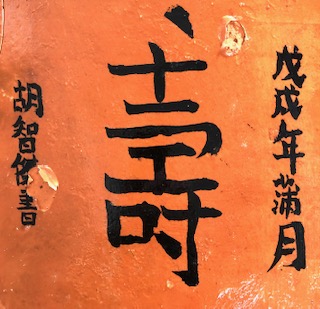 戊戌年蒲月
壽
胡智傑書